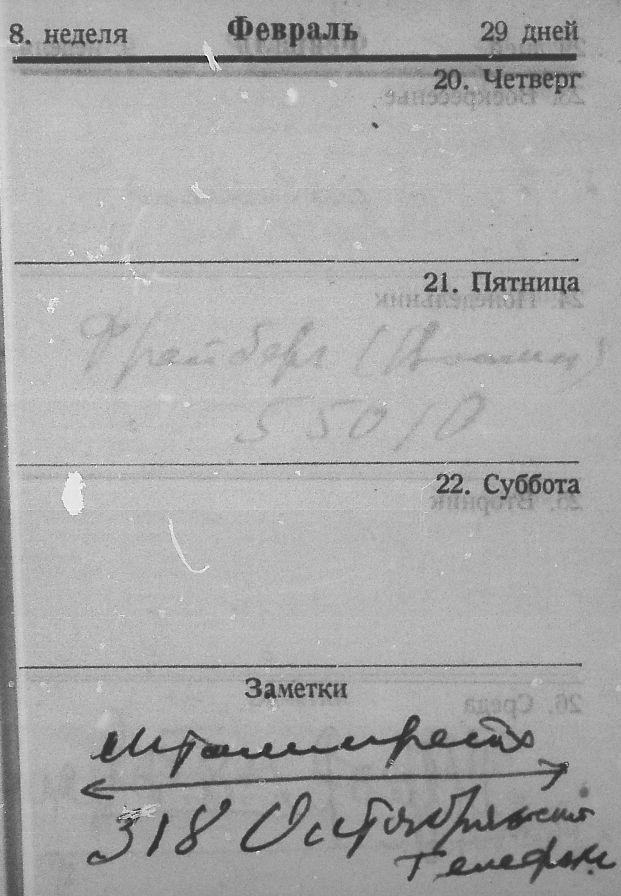 8. неделя Февраль 29 дней
20. Четверг
21. Пятница
Фрайберг
55010
22. Суббота
Заметки
318 Октябрьская
Телефон